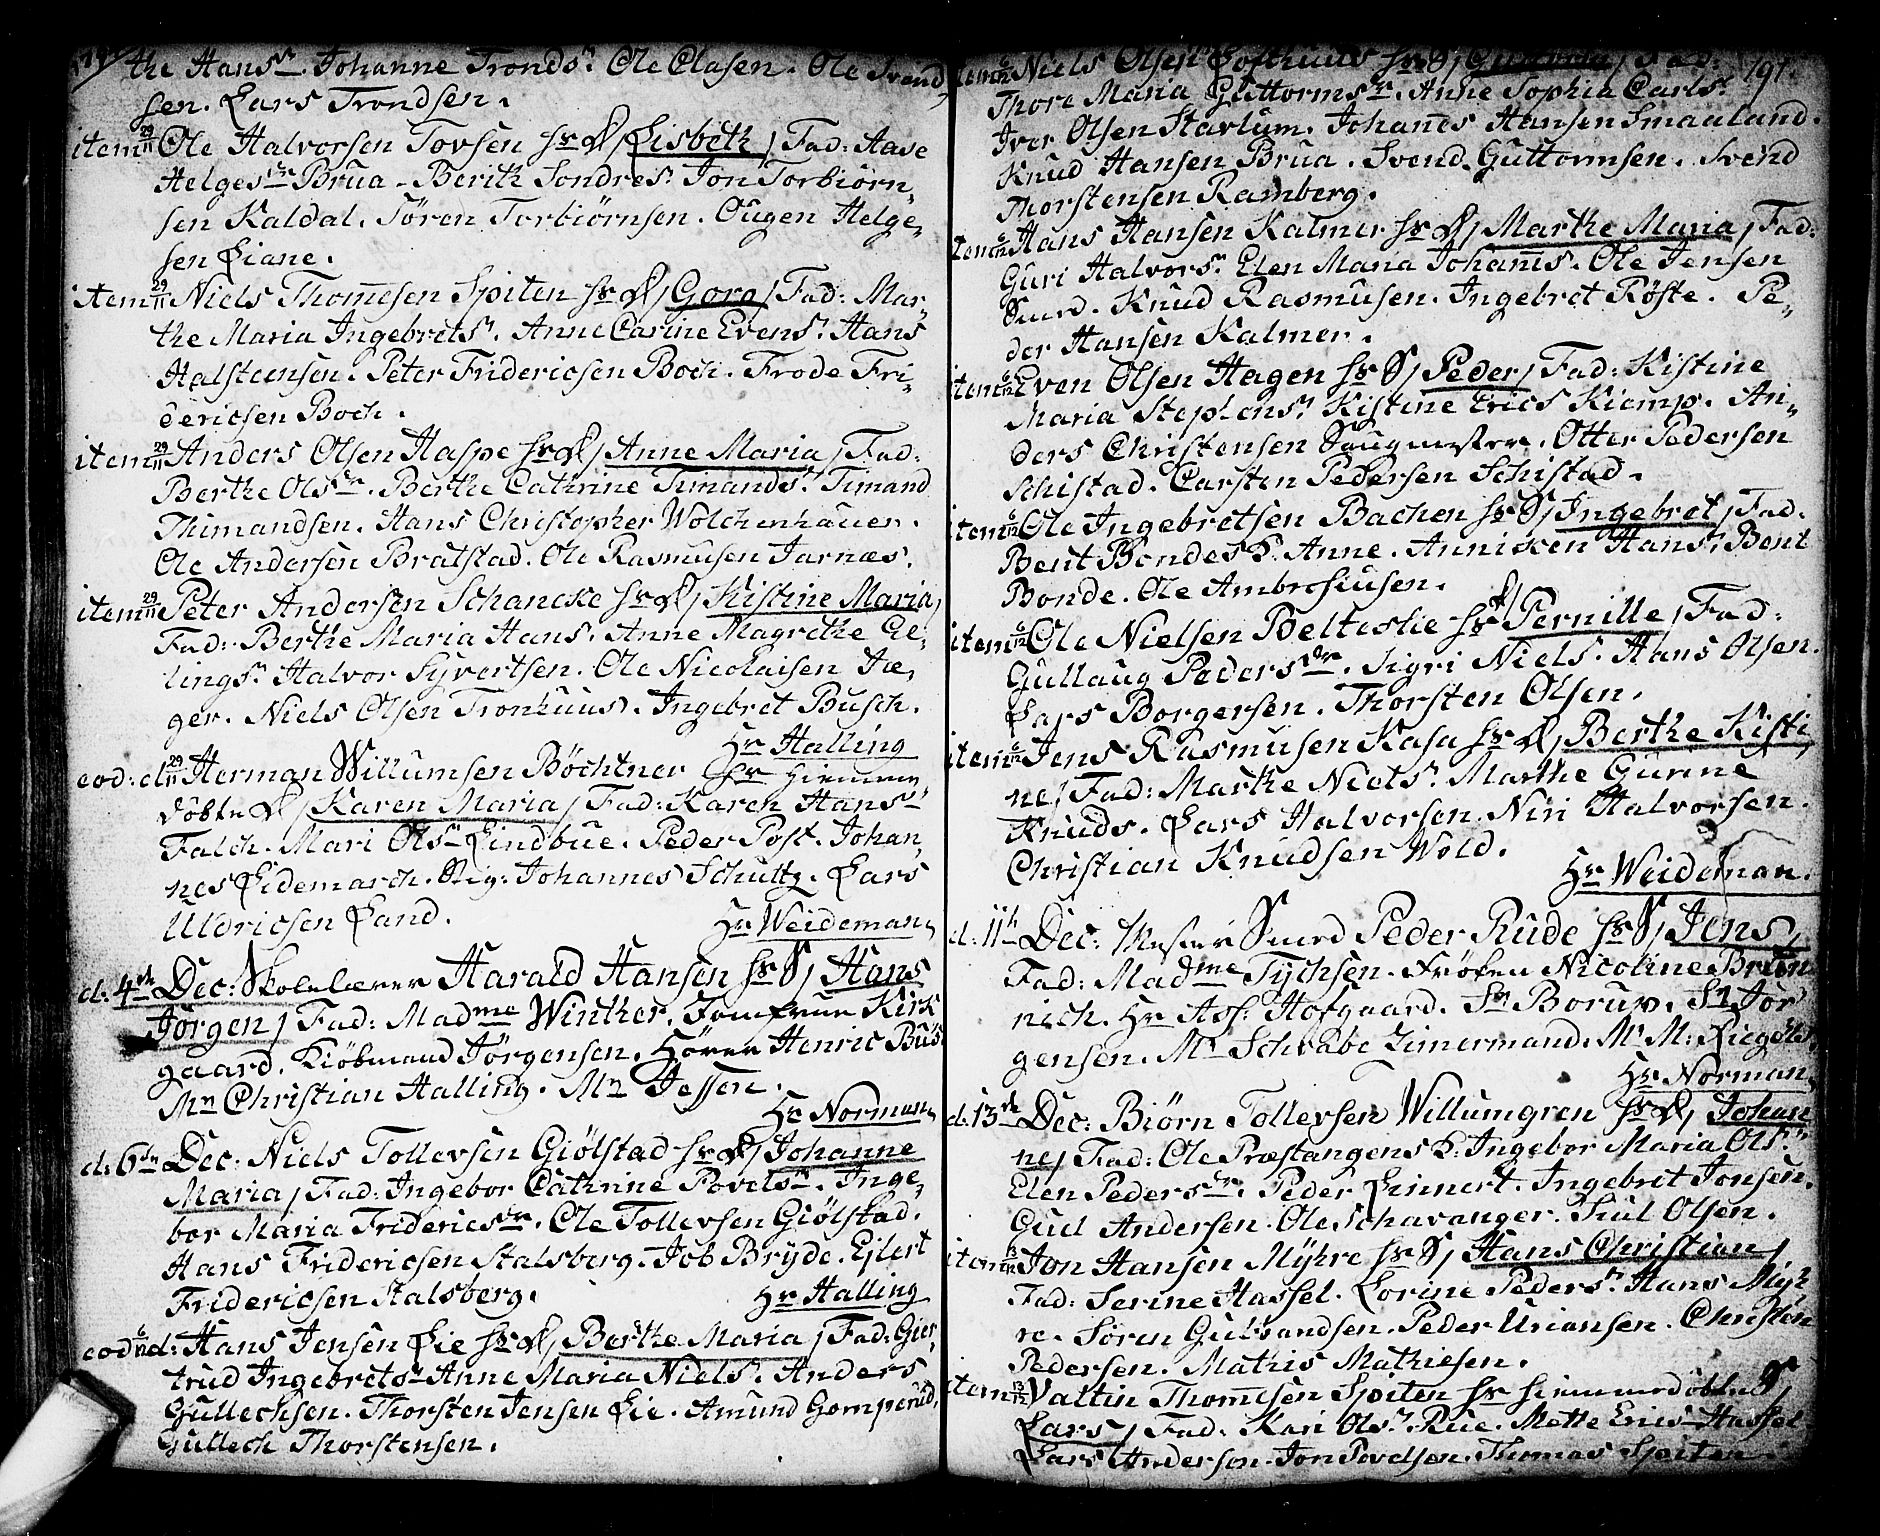 the Hansn. Johanne Trondsn. Ole Clasen. Ole Svend
sen. Lars Trondsen.
item 29/11 Ole Halvorsen Tovsen hr D, Lisbeth, Fad: Aase
Helgesdr Brua - Berith Sondres. Jon Torbiørn-
sen Kaldal. Søren Torbiørnsen. Ougen Helge-
sen Liane.
item 29/11 Niels Thomesen Spiten hr D, Goro, Fad: Mar-
the Maria Ingebretsn. Anne Carine Evensn. Hans
Halstensen. Peter Fridericsen Boch. Frode Fri-
dericsen Boch.
item 29/11 Anders Olsen Haspe hr D, Anne Maria, Fad:
Berthe Olsdr. Berthe Cathrine Timandsn. Timand
Thimandsen. Hans Christopher Wolchenhauer.
Ole Andersen Bratstad. Ole Rasmusen Jarnæs.
item 29/11 Peter Andersen Schancke hr D, Kistine Maria,
Fad: Berthe Maria Hans. Anne Magrethe Ee-
lingsn. Halvor Syvertsen. Ole Nicolaisen Jæ-
ger. Niels Olsen Tronhuus. Ingebret Busch.
Hr Halling
eod: d 29/11 Herman Willumsen Böchtner hr hiemme
döbte D, Karen Maria, Fad: Karen Hansn
Falch. Mari Olsn Lindbue. Peder Post. Johan-
nes Eidemarch. Reg: Johannes Schultz. Lars
Uldricsen Land.
Hr Weideman
d. 4de Dec: Skolelærer Harald Hansen hr S, Hans
Jörgen, Fad: Madme Winther. Jomfrue Kirk
gaard. Kiöbmand Jörgensen. Hörer Henric Büs
Mr Christian Halling. Mr Jessen.
Hr Norman
d: 6te Dec: Niels Tollevsen Giölstad hr D, Johanne
Maria, Fad: Ingebor Cathrine Povelsn. Inge-
bor Maria Fridericsdr. Ole Tollevsen Giölstad.
Hans Fridericsen Stalsberg. Job Bryde. Eilert
Fridericsen Stalsberg.
Hr Halling
eod 6/12 d: Hans Jensen Lie hr D, Berthe Maria, Fad: Gier-
trud Ingebretsn Anne Maria Niels. Anders
Gullechsen. Thorsten Jensen Lie. Amund Gomperud.
Gullech Thorstensen.
item 6/12 Niels Olsen hr D, Fad: 191.
Thore Maria Guttormsn. Anne Sophia Carlsn.
Iver Olsen Starlum. Johanes Hansen Smaaland.
Knud Hansen Brua. Svend Guttormsen. Svend
Thorstensen Ramberg.
item 6/12 Hans Hansen Kalmer hr D, Marthe Maria, Fad:
Guri Halvorsn. Elen Maria Johanns. Ole Jensen
Smed. Knud Rasmusen. Ingebret Röste. Pe-
der Hansen Kalmer.
item 6/12 Even Olsen Hagen hr S, Peder, Fad: Kistine
Maria Stephensn. Kistine Erics Kiemp. An-
ders Christensen Saugmester. Otter Pedersen
Schistad. Carsten Pedersen Schistad.
item 6/12 Ole Ingebretsen Bachen hr S, Ingebret, Fad:
Bent Bondes K. Anne. Annisen Hansn. Bent
Bonde. Ole Ambrosiusen.
item 6/12 Ole Nielsen Belteslie hr D, Pernille, Fad:
Gullaug Pedersdr. Sigri Niels. Hans Olsen.
Lars Borgersen. Thorsten Olsen.
item 6/12 Jens Rasmusen Kasa hr D, Berthe Kisti
ne, Fad: Marthe Nielsn. Marthe Gunne
Knuds. Lars Halvorsen. Niri Halvorsen.
Christian Knudsen Wold.
Hr Weideman.
d. 11te Dec: Mester Smed Peder Rude hr S, Jens,
Fad: Madme Tychsen. Fröken Nicoline Brün
nich. Hr Ass: Hofgaard. Sr Borup. Sr Jör
gensen. Mr Schrabe Zimermand. Mr M: Riegels.
Hr Norman
d. 13de Dec: Biörn Tollevsen Willumgren hr D, Johan
ne, Fad: Ole Præstangens K. Ingebor Maria Olsn
Elen Pedersdr. Peder Linnert. Ingebret Jonsen.
Gul Andersen. Ole Schavanger. Juul Olsen.
item 13/12 Jon Hansen Myhre hr S, Hans Christian,
Fad: Serine Hassel. Lorine Pedersn. Hans Myh
re. Sören Gulbrandsen. Peder Uriansen. Christen
Pedersen. Mathis Mathiesen.
item 13/12 Valtin Thomesen Spiten hr hiemmedöbte S,
Lars, Fad: Kari Olsn. Rue. Mette Erics Hassel
Lars Anderson. Jon Povelsen. Thomas Spiten.